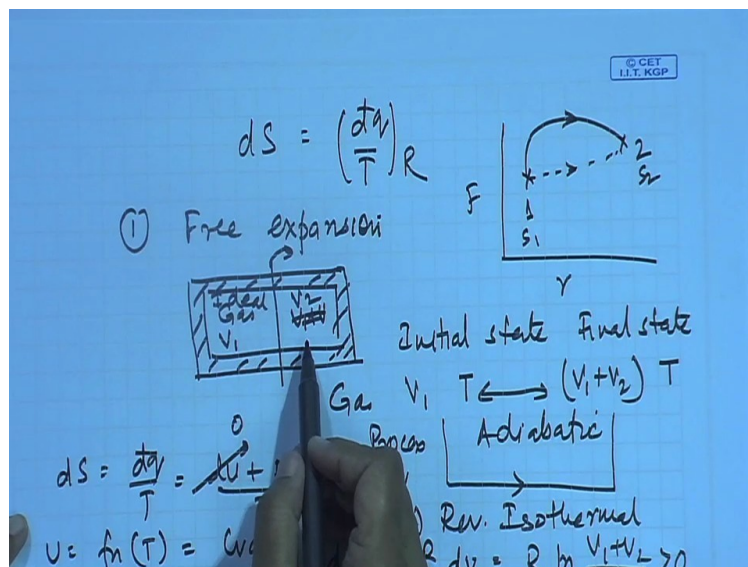 © CET
I.I.T. KGP
dS = (đq/T)R
F
1
S1
2
S2
Y
① Free expansion
Ideal
Gas
V1
V2
Initial state Final state
Gas V1 T ⟷ (V1+V2) T
0
Process Adiabatic
dS = đq/T = dU +
Rev. Isothermal
U = fn(T) = Cv
dv = R ln V1+V2 >0